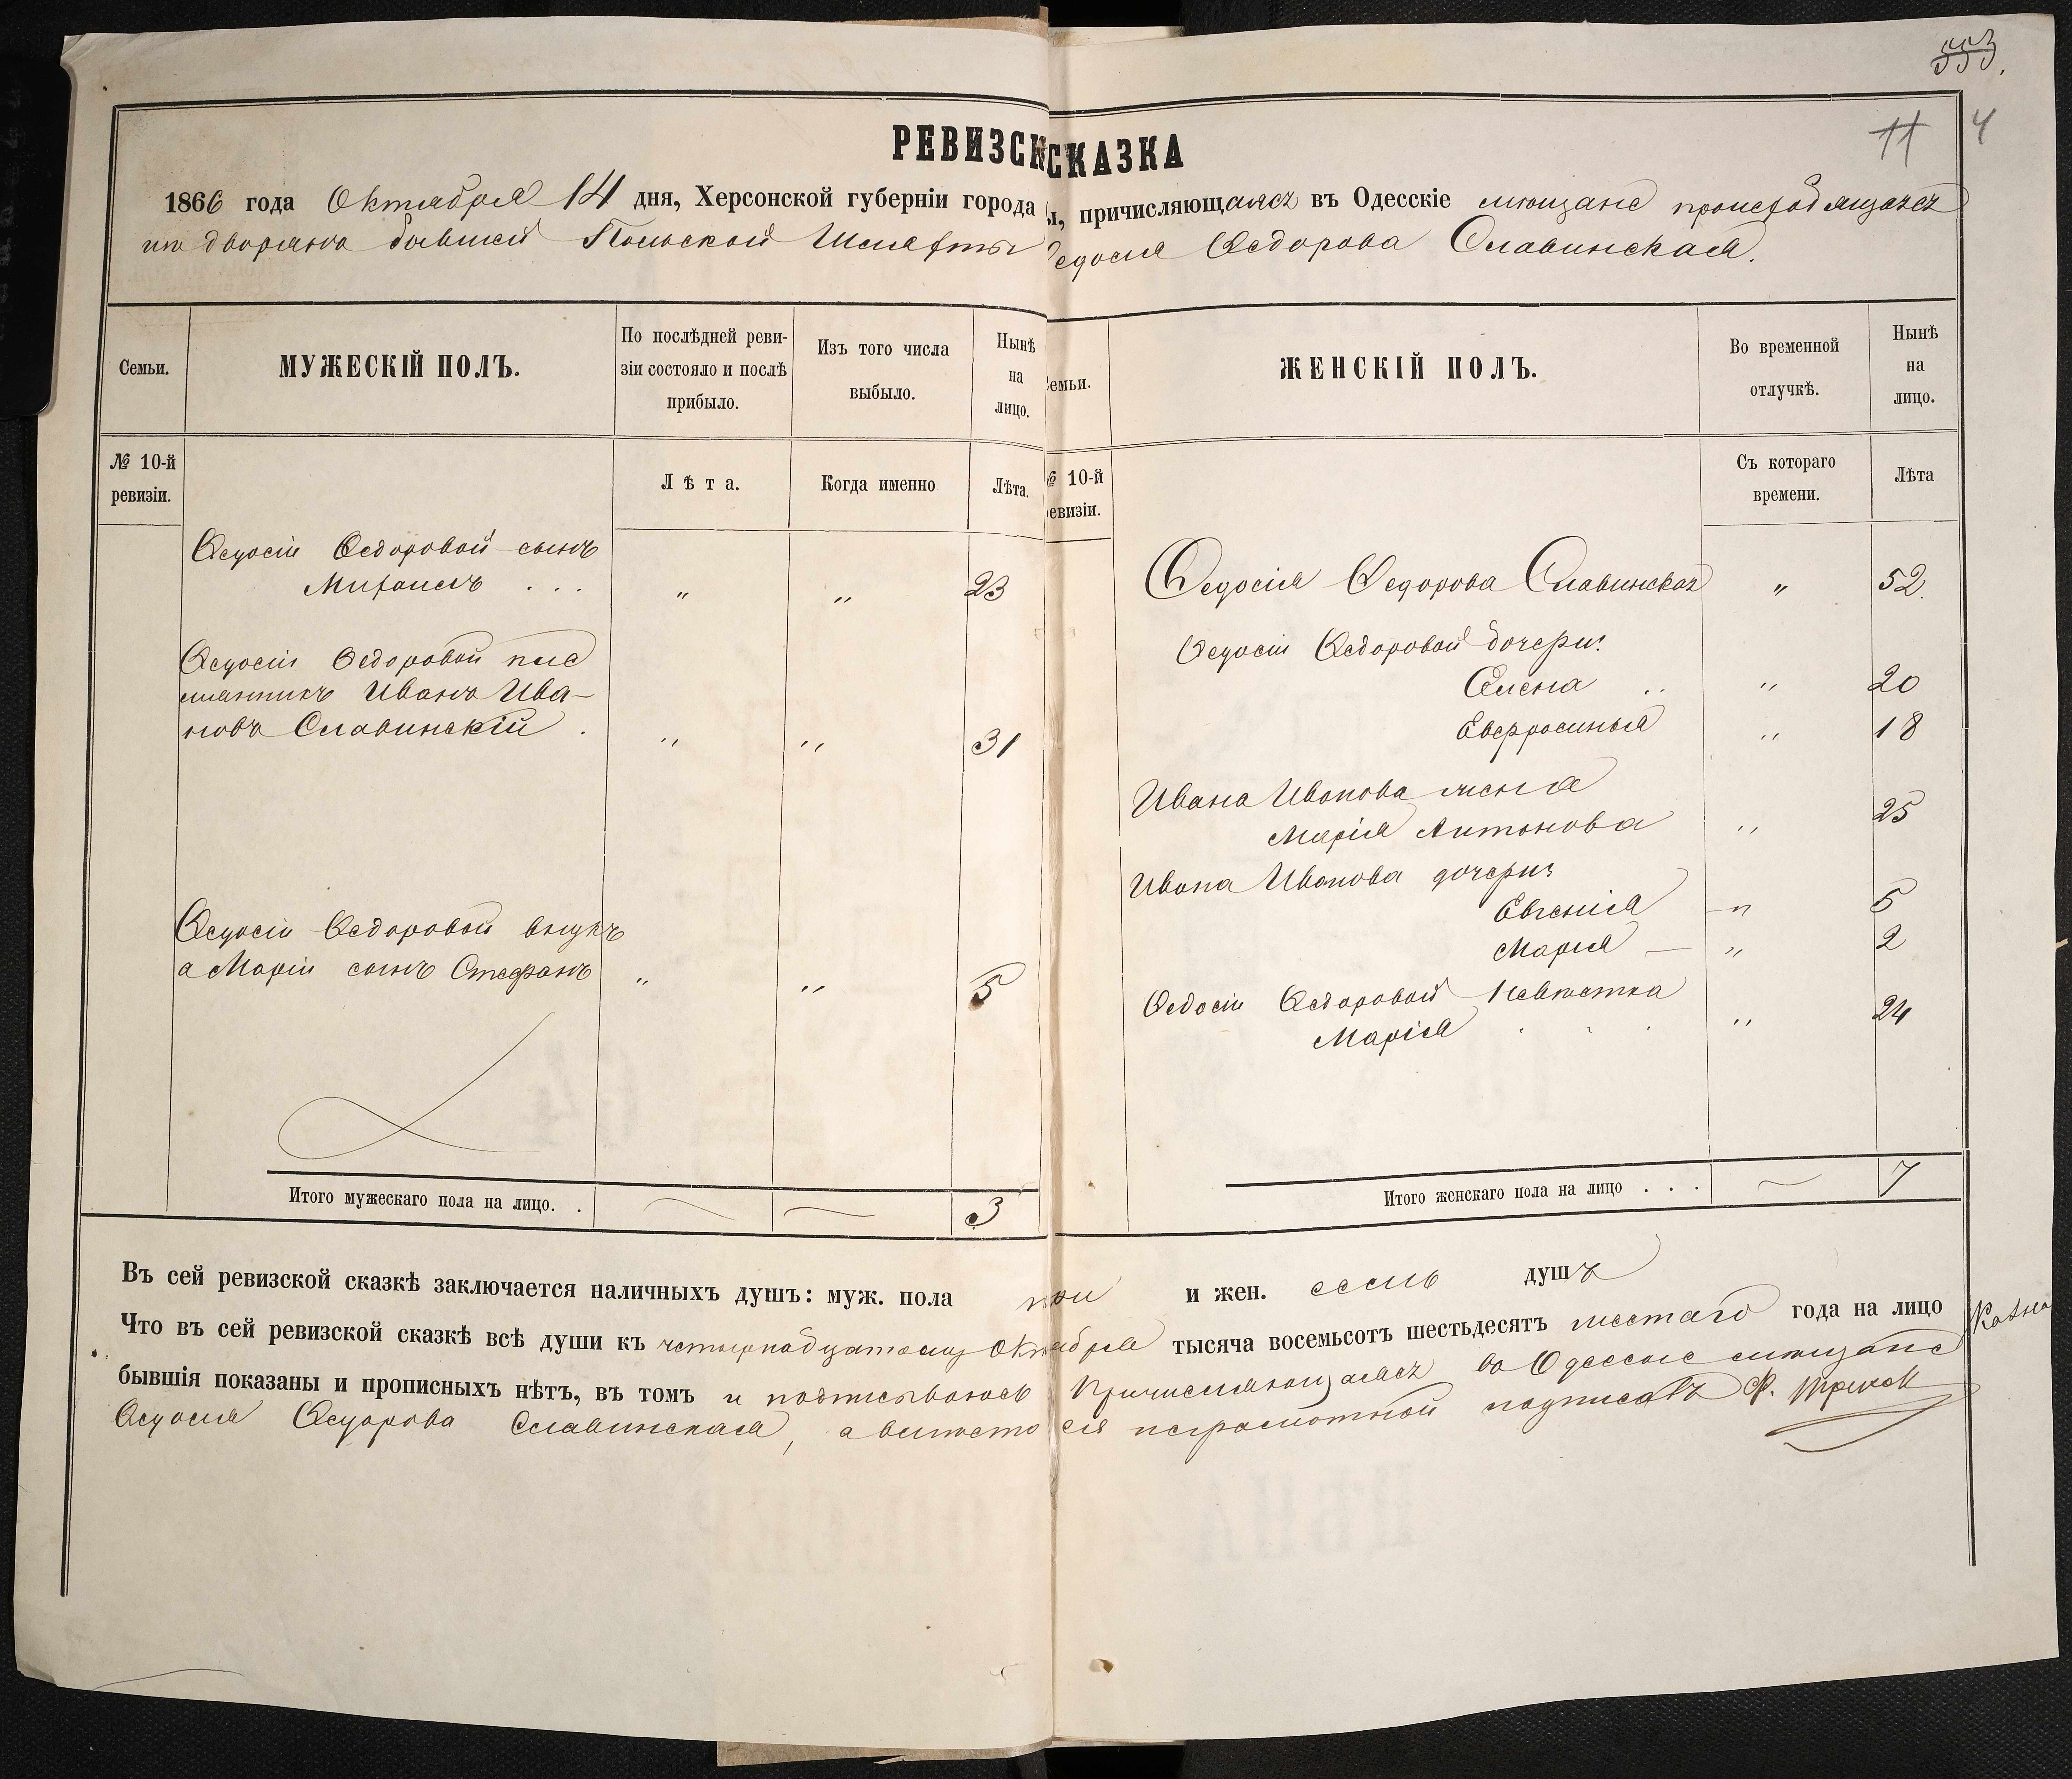 553.
11 4
РЕВИЗСК СКАЗКА
1866 года Октября 14 дня, Херсонской губерніи города причисляющаяся въ Одесскіе мѣщане происходящая
изъ дворянъ бывшей Польской Шляхты Ѳедосія Ѳедорова Славинская.
Семьи.
МУЖЕСКІЙ ПОЛЪ.
По послѣдней реви-
зіи состояло и послѣ
прибыло.
Изъ того числа
выбыло.
Нынѣ
на
лицо.
№ 10-й
ревизіи.
Лѣта.
Когда именно
Лѣта.
Ѳедосіи Ѳедоровой сынъ
Михаилъ . . . " " 23
Ѳедосіи Ѳедоровой пле
мянникъ Иванъ Ива-
новъ Славинскій . " " 31
Ѳедосіи Ѳедоровой внукъ
а Маріи сынъ Стефанъ " " 5
Итого мужескаго пола на лицо. . — — 3
Семьи.
ЖЕНСКІЙ ПОЛЪ.
Во временной
отлучкѣ.
Нынѣ
на
лицо.
№ 10-й
ревизіи.
Съ котораго
времени.
Лѣта
Ѳедосія Ѳедорова Славинская " 52.
Ѳедосіи Ѳедоровой дочери:
Елена .. " 20
Евфросинья " 18
Ивана Иванова жена
Марія Антонова " 25
Ивана Иванова дочери:
Евгенія — " 5
Марія — " 2
Ѳедосіи Ѳедоровой невѣстка
Марія . . . " 24
Итого женскаго пола на лицо . . . — 7
Въ сей ревизской сказкѣ заключается наличныхъ душъ: муж. пола три и жен. семь душъ
Что въ сей ревизской сказкѣ всѣ души къ четырнадцатому Октября тысяча восемьсотъ шестьдесятъ шестаго года на лицо
бывшія показаны и прописныхъ нѣтъ, въ томъ и подписываюсь Причисляющаяся въ Одесскіе мѣщане
Ѳедосія Ѳедорова Славинская, а вмѣсто ея неграмотной подписалъ Ф.